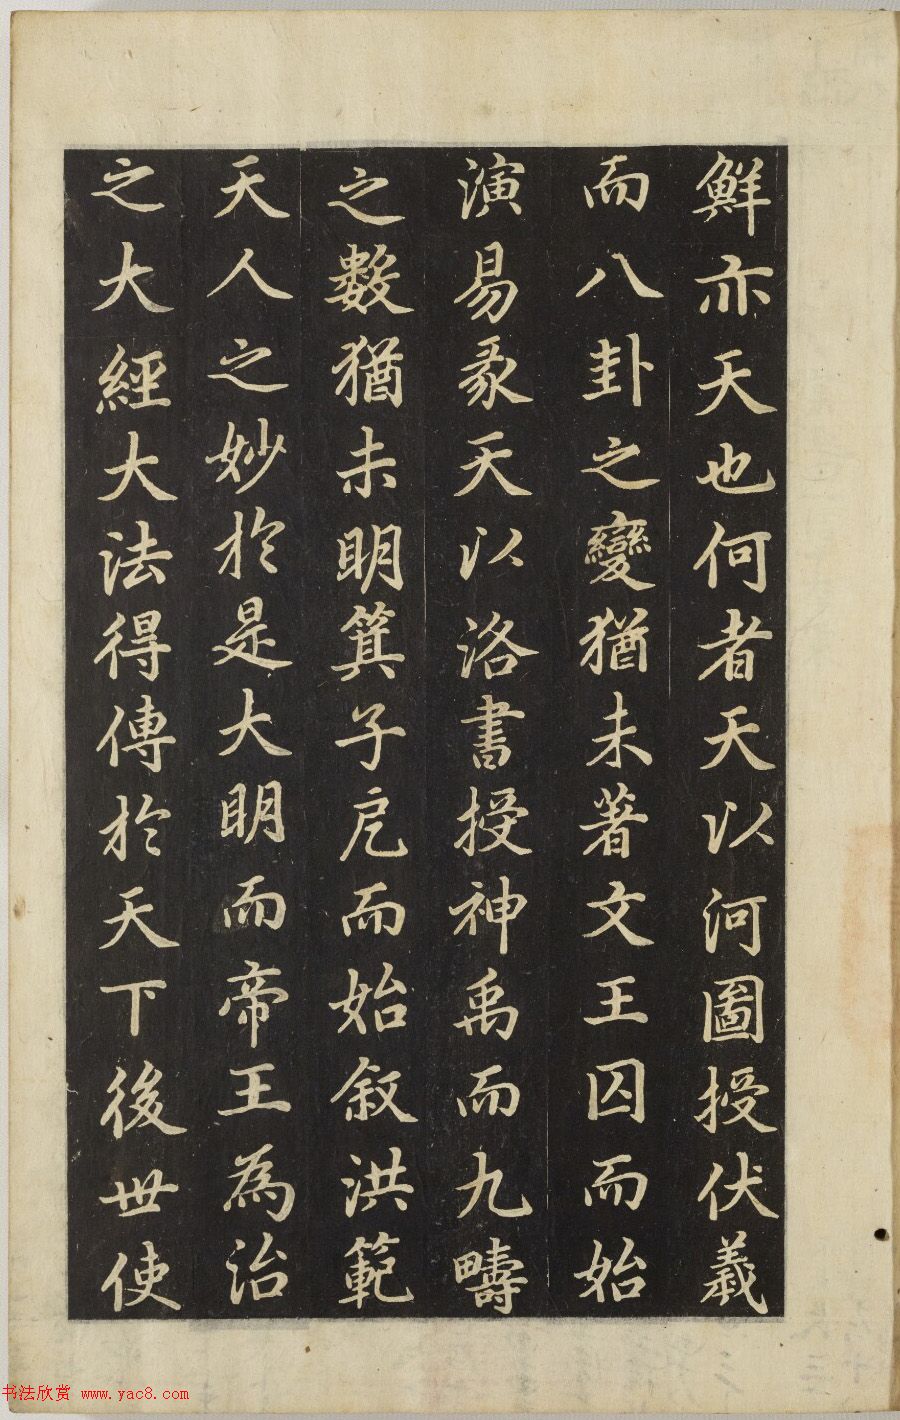 鮮亦天也何者天以河圖授伏羲
而八卦之變猶未著文王囚而始
演易彖天以洛書授神禹而九疇
之數猶未明箕子戹而始叙洪範
天人之妙於是大明而帝王為治
之大經大法得傳於天下後世使
书法欣赏 www.yac8.com